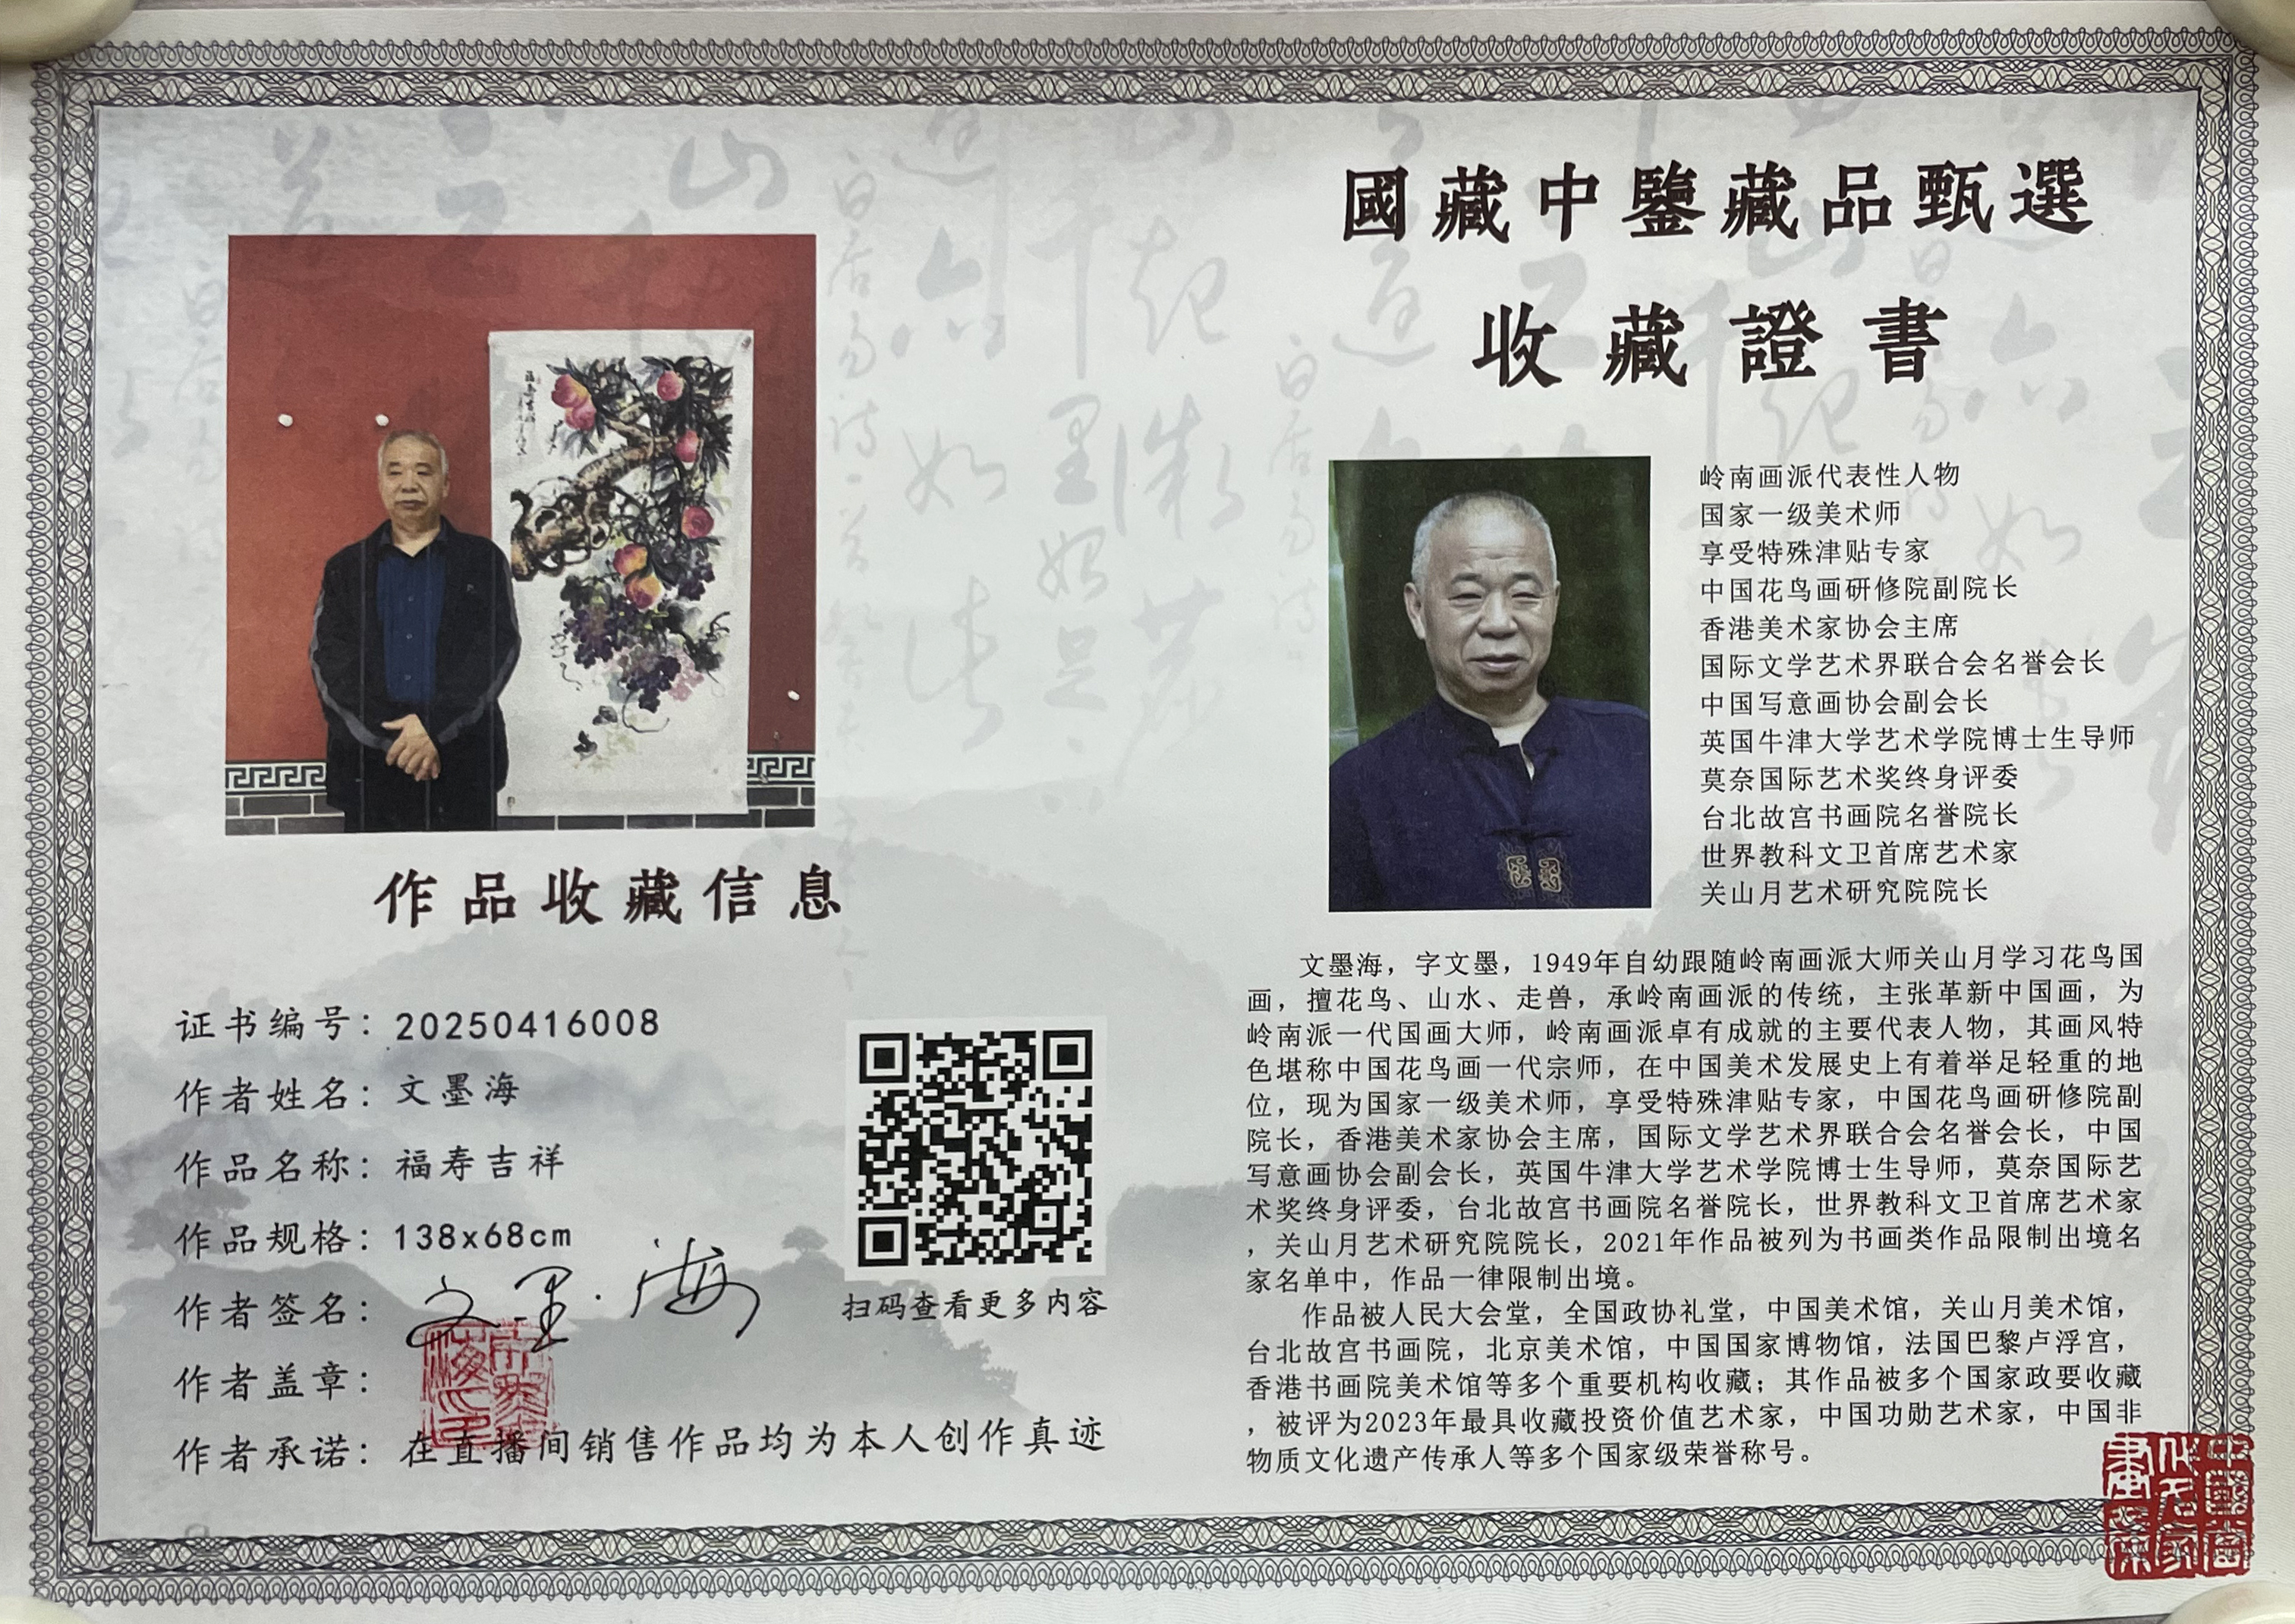 國藏中鑒藏品甄選
收藏證書
岭南画派代表性人物
国家一级美术师
享受特殊津贴专家
中国花鸟画研修院副院长
香港美术家协会主席
国际文学艺术界联合会名誉会长
中国写意画协会副会长
英国牛津大学艺术学院博士生导师
莫奈国际艺术奖终身评委
台北故宫书画院名誉院长
世界教科文卫首席艺术家
关山月艺术研究院院长
作品收藏信息
证书编号：20250416008
作者姓名：文墨海
作品名称：福寿吉祥
作品规格：138x68cm
作者签名：文墨海
作者盖章：
作者承诺：在直播间销售作品均为本人创作真迹
扫码查看更多内容
文墨海，字文墨，1949年自幼跟随岭南画派大师关山月学习花鸟国
画，擅花鸟、山水、走兽，承岭南画派的传统，主张革新中国画，为
岭南派一代国画大师，岭南画派卓有成就的主要代表人物，其画风特
色堪称中国花鸟画一代宗师，在中国美术发展史上有着举足轻重的地
位，现为国家一级美术师，享受特殊津贴专家，中国花鸟画研修院副
院长，香港美术家协会主席，国际文学艺术界联合会名誉会长，中国
写意画协会副会长，英国牛津大学艺术学院博士生导师，莫奈国际艺
术奖终身评委，台北故宫书画院名誉院长，世界教科文卫首席艺术家
，关山月艺术研究院院长，2021年作品被列为书画类作品限制出境名
家名单中，作品一律限制出境。
作品被人民大会堂，全国政协礼堂，中国美术馆，关山月美术馆，
台北故宫书画院，北京美术馆，中国国家博物馆，法国巴黎卢浮宫，
香港书画院美术馆等多个重要机构收藏；其作品被多个国家政要收藏
，被评为2023年最具收藏投资价值艺术家，中国功勋艺术家，中国非
物质文化遗产传承人等多个国家级荣誉称号。